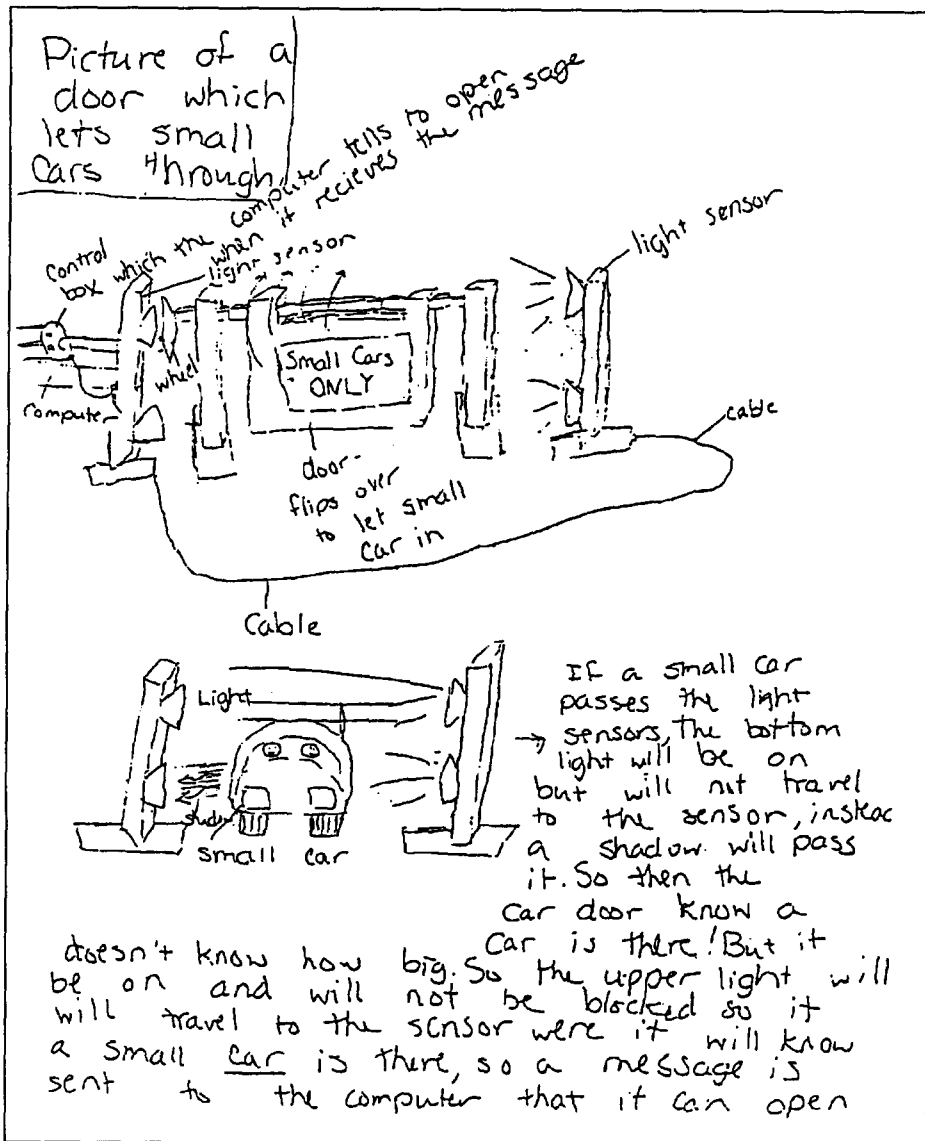 Picture of a
door which
lets small
Cars through
control
box which the computer tells to open
when it recieves the message
light sensor
light sensor
wheel
Computer
Small Cars
ONLY
cable
door-
flips over
to let small
car in
Cable
Light
small car
If a small car
passes the light
sensors, the bottom
light will be on
but will not travel
to the sensor, insteac
a shadow will pass
it. So then the
car door know a
car is there! But it
doesn't know how big. So the upper light will
be on and will not be blocked so it
will travel to the sensor were it will know
a small car is there, so a message is
sent to the computer that it can open